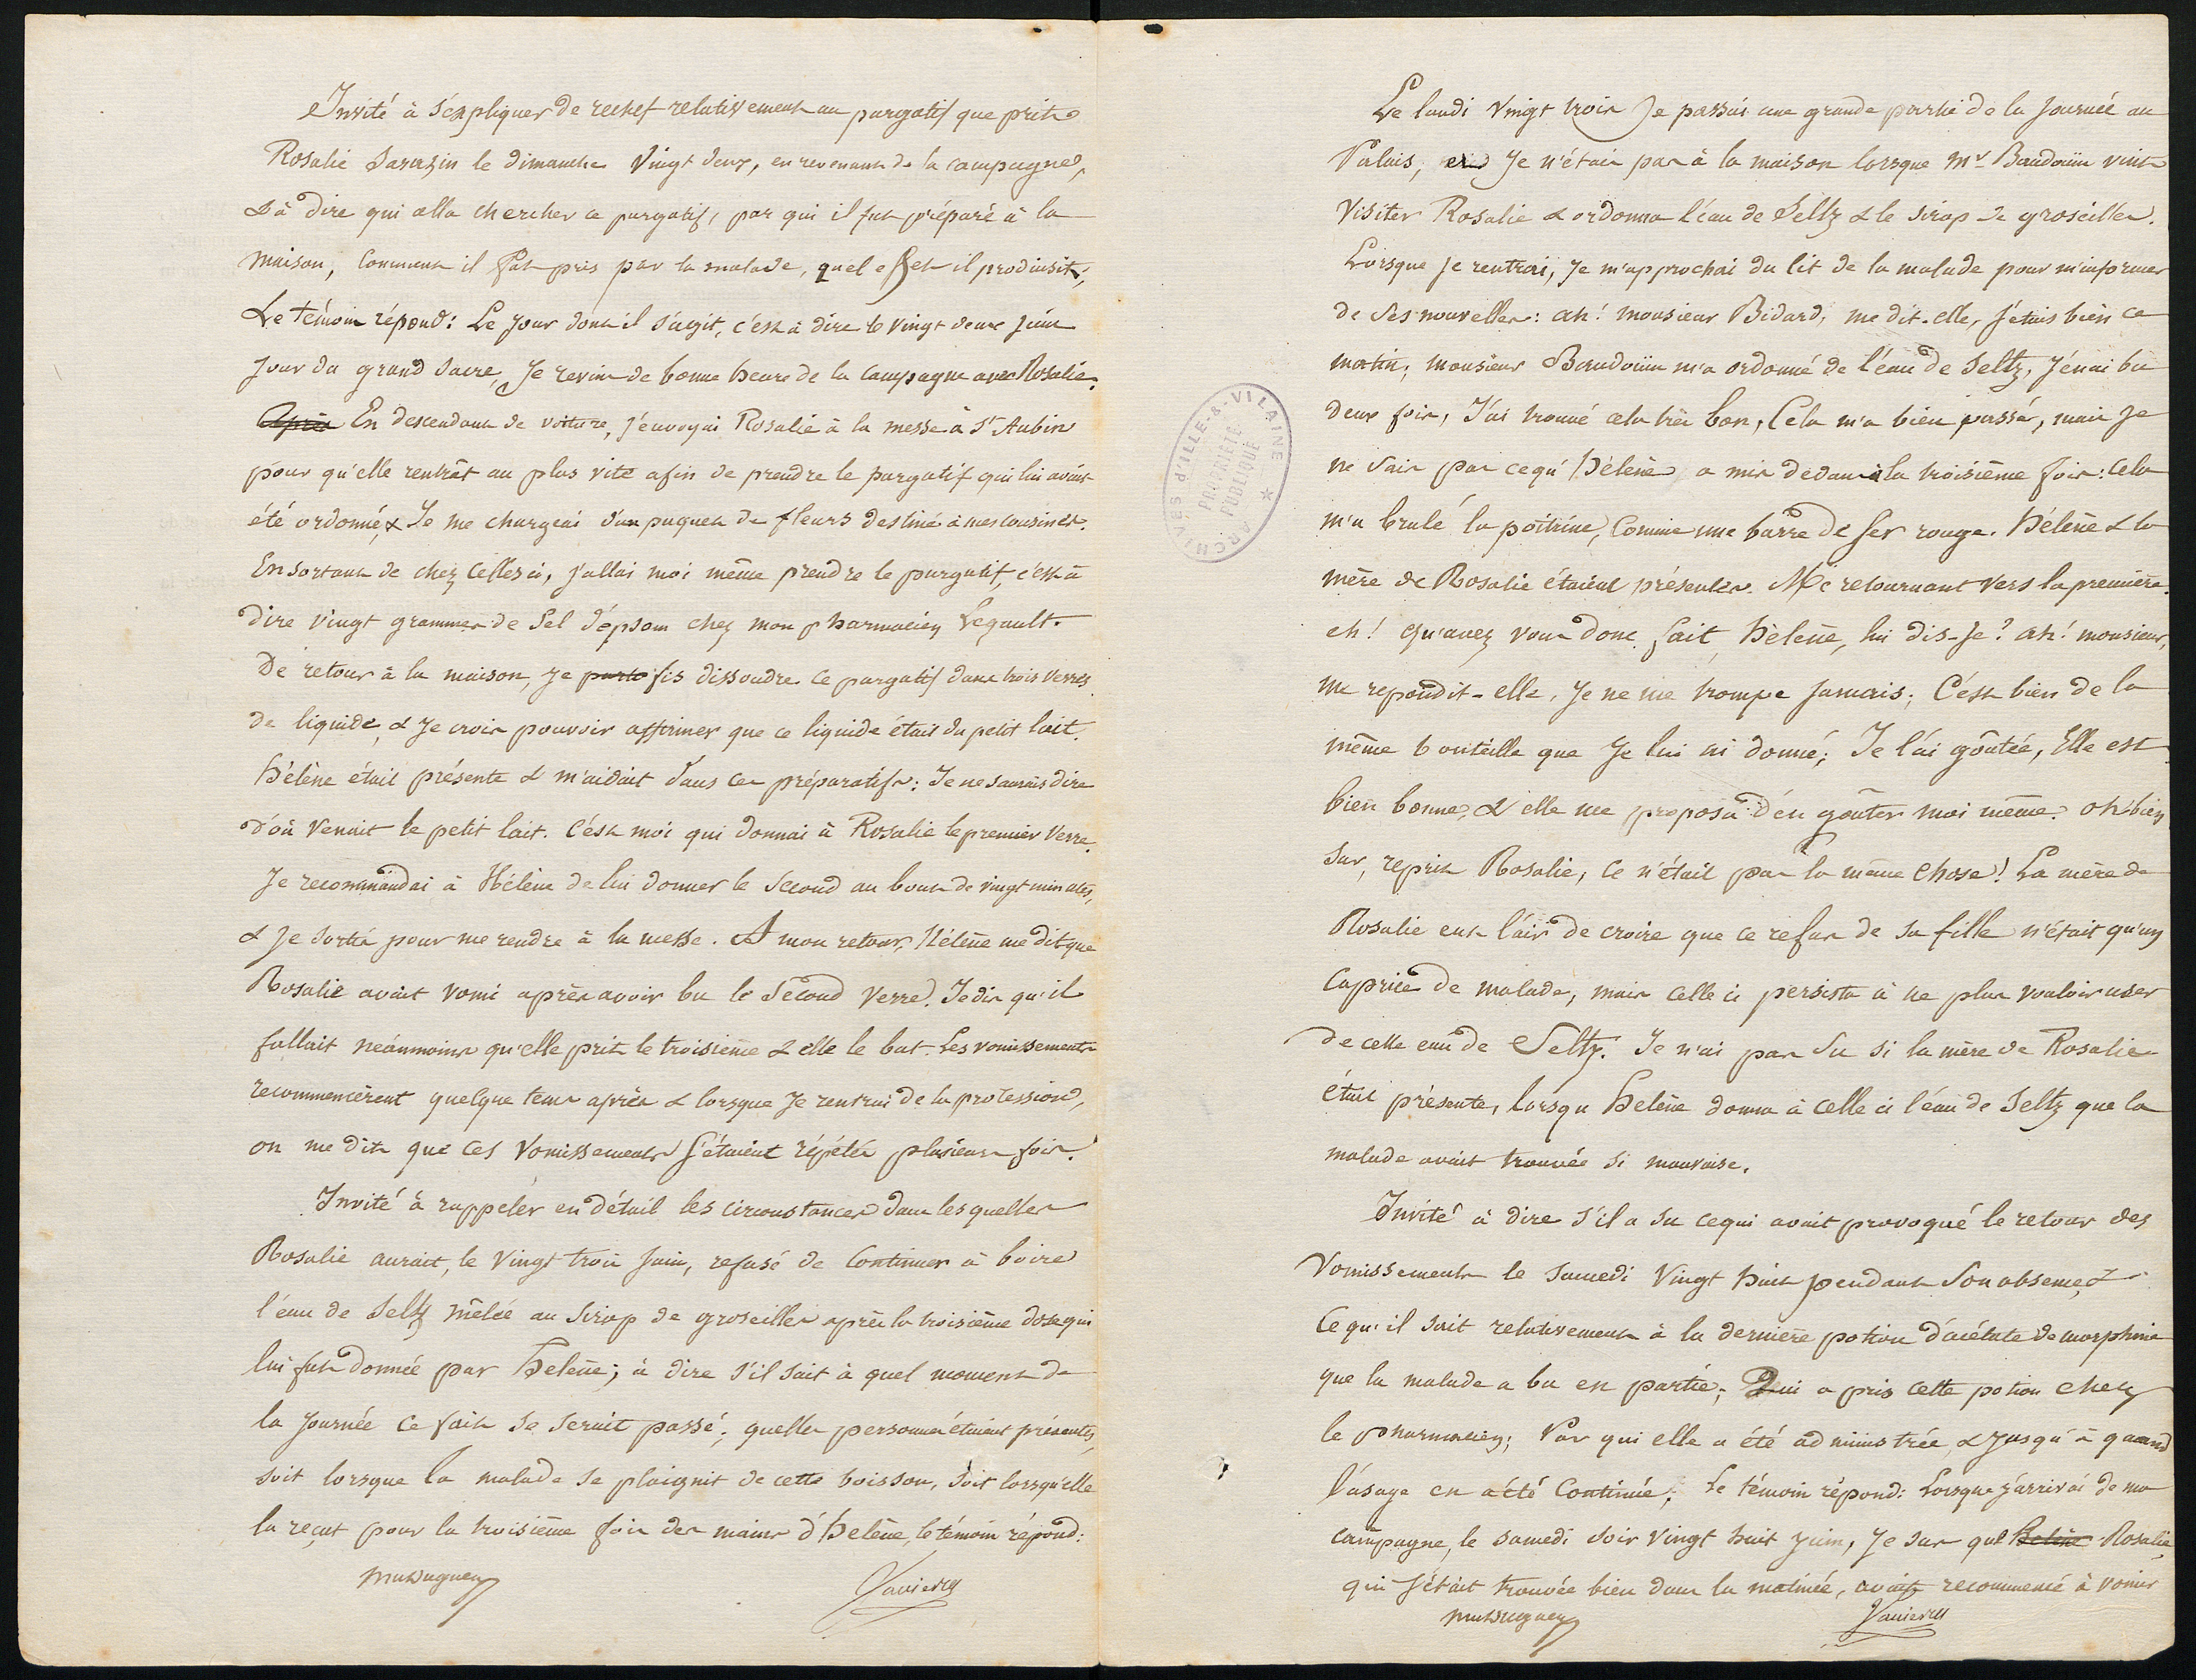 Invité à s'expliquer de rechef relativement au purgatif que prit
Rosalie Sarazin le dimanche vingt deux, en revenant de la campagne,
& à dire qui alla chercher ce purgatif, par qui il fut préparé à la
maison, comment il fut pris par la malade, quel effet il produisit;
Le témoin répond: Le jour dont il s'agit, c'est à dire le vingt deux juin
jour du grand sacre, Je revins de bonne heure de la campagne avec Rosalie.
Après En descendant de voiture, j'envoyai Rosalie à la messe à St Aubin
pour qu'elle rentrât au plus vite afin de prendre le purgatif qui lui avait
été ordonné, & Je me chargeai d'un paquet de fleurs destiné à mes cousines.
En sortant de chez celles ci, j'allai moi même prendre le purgatif, c'est à
dire vingt grammes de Sel d'epsom chez mon pharmacien Legault.
De retour à la maison, je fis dissoudre ce purgatif dans trois verres
de liquide, & Je crois pouvoir affirmer que ce liquide était du petit lait.
Hélène était présente & m'aidait dans ces préparatifs: Je ne saurais dire
d'où venait le petit lait. C'est moi qui donnai à Rosalie le premier verre.
Je recommandai à Hélène de lui donner le second au bout de vingt minutes,
& Je sortis pour me rendre à la messe. A mon retour, Hélène me dit que
Rosalie avait vomi après avoir bu le second verre. Je dis qu'il
fallait néanmoins qu'elle prit le troisième & elle le but. Les vomissements
recommencèrent quelque tems après & lorsque Je rentrai de la procession,
on me dit que ces vomissements s'étaient répétés plusieurs fois.
Invité à rappeler en détail les circonstances dans lesquelles
Rosalie aurait, le vingt trois juin, refusé de continuer à boire
l'eau de Seltz mêlée au sirop de groseilles après la troisième dose qui
lui fut donnée par Helène; à dire s'il sait à quel moment de
la journée ce fait se serait passé; quelles personnes étaient présentes,
soit lorsque la malade se plaignit de cette boisson, soit lorsqu'elle
la reçut pour la troisième fois des mains d'Helène, le témoin répond:
Le lundi vingt trois Je passai une grande partie de la journée au
Palais, Je n'étais pas à la maison lorsque Mr Baudouin vint
visiter Rosalie & ordonna l'eau de Seltz & le sirop de groseilles.
Lorsque Je rentrai, Je m'approchai du lit de la malade pour m'informer
de ses nouvelles: ah! monsieur Bidard, me dit-elle, j'étais bien ce
matin; monsieur Baudouin m'a ordonné de l'eau de Seltz, J'en ai bu
deux fois, J'ai trouvé cela très bon, Cela m'a bien passé, mais Je
ne sais pas ce qu'Hélène a mis dedans à la troisième fois: Cela
m'a brulé la poitrine, Comme une barre de fer rouge. Hélène & la
mère de Rosalie étaient présentes. Me retournant vers la première.
eh! qu'avez vous donc fait, Hélène, lui dis-Je? ah! monsieur,
me répondit-elle, Je ne me trompe jamais; C'est bien de la
même bouteille que Je lui ai donné; Je l'ai goûtée, Elle est
bien bonne, & elle me proposa d'en goûter moi même. oh bien
sur, reprit Rosalie, ce n'était pas la même chose! La mère de
Rosalie eut l'air de croire que ce refus de sa fille n'était qu'un
caprice de malade, mais celle ci persista à ne plus vouloir user
de cette eau de Seltz. Je n'ai pas su si la mère de Rosalie
était présente, lorsqu Helène donna à celle ci l'eau de Seltz que la
malade avait trouvée si mauvaise.
Invité à dire s'il a su ce qui avait provoqué le retour des
Vomissements le samedi vingt huit pendant son absence, &
Ce qu'il sait relativement à la dernière potion d'acétate de morphine
que la malade a bu en partie; Qui a pris cette potion chez
le pharmacien; Par qui elle a été administrée & Jusqu'à quand
l'usage en a été continué; Le témoin répond: Lorsque j'arrivai de ma
campagne, le samedi soir vingt huit juin, Je sus que Helène Rosalie,
qui s'était trouvée bien dans la matinée, avait recommencé à vomir
ARCHIVES d'ILLE-&-VILAINE
PROPRIÉTÉ
PUBLIQUE